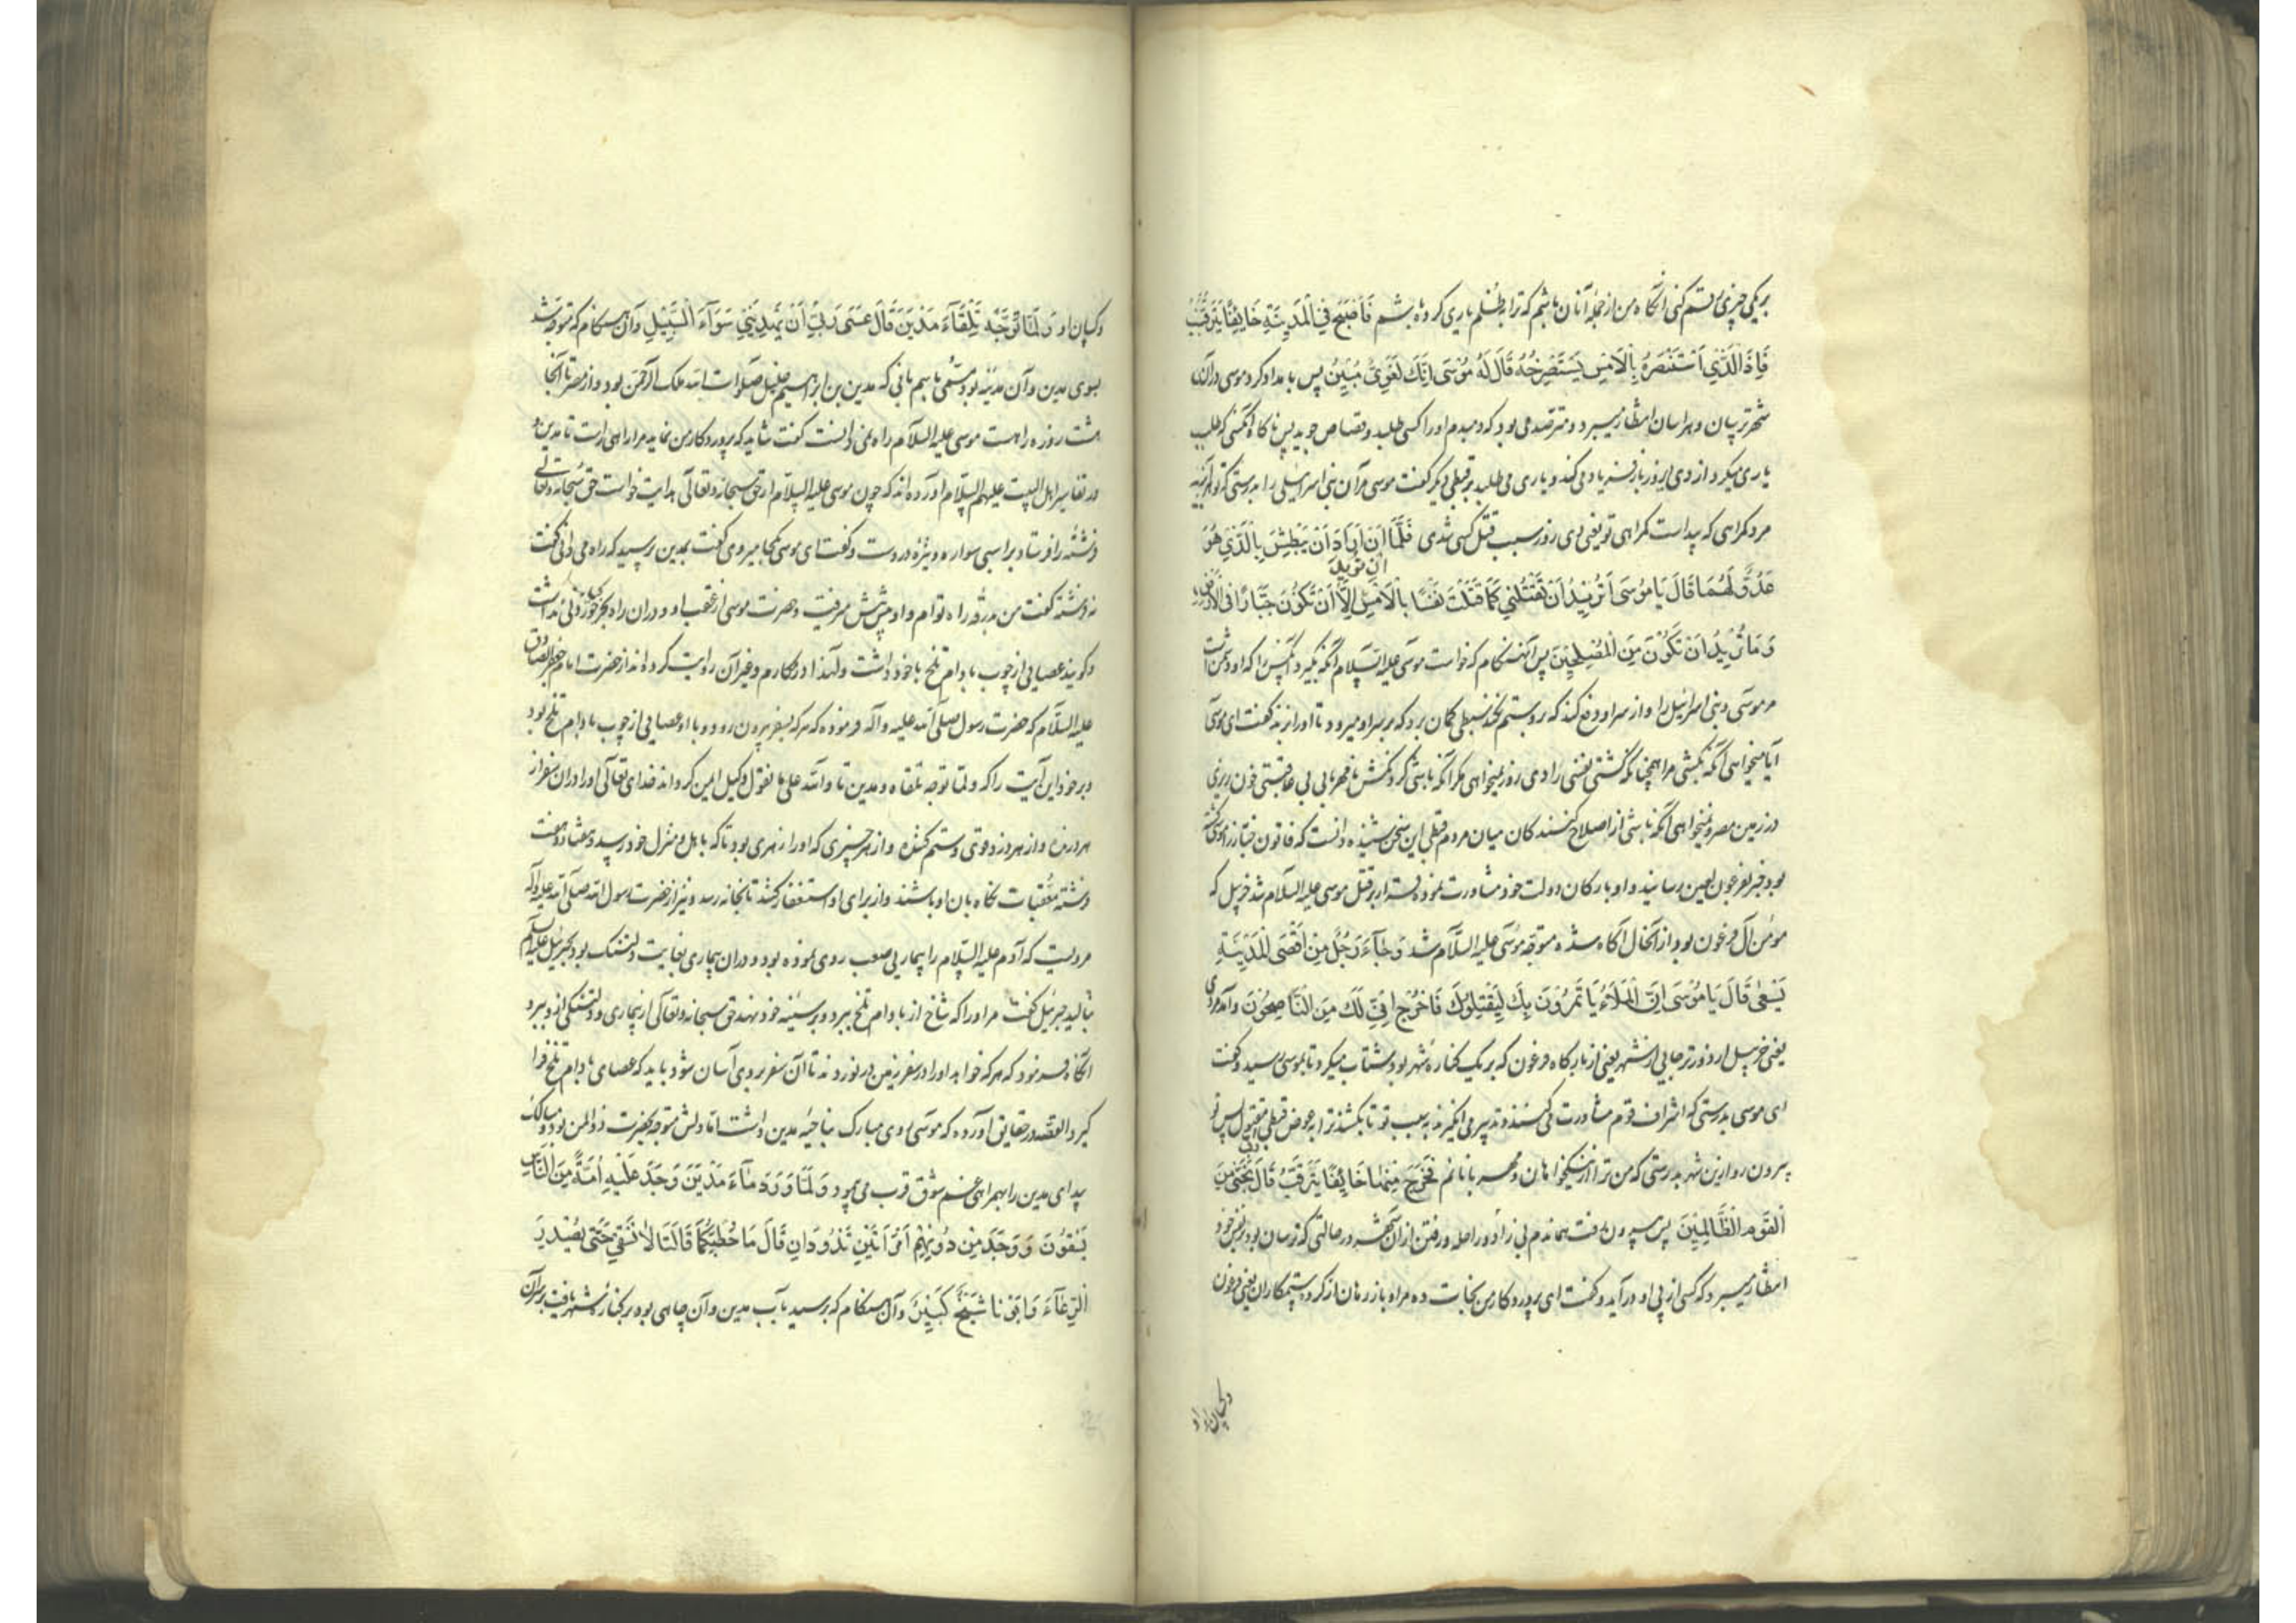 بریکی چیزی ستم کنی آنگاه من از جمله آنان باشم که ترا بظلم یاری کرده باشم فَاَصْبَحَ فِي الْمَدِينَةِ خَائِفًا يَتَرَقَّبُ
فَاِذَا الَّذِي اسْتَنْصَرَهُ بِالْاَمْسِ يَسْتَصْرِخُهُ قَالَ لَهُ مُوسَى اِنَّكَ لَغَوِيٌّ مُبِينٌ پس بامداد کرد موسی در آن
شهر ترسان و هراسان انتظار میبرد و مترصد می بود که دمبدم او را کسی طلبد و قصاص جوید پس ناگاه آنکسی که طلب
یاری میکرد از وی دیروز باز فریاد می کند و یاری می طلبد بر قبطی دیگر گفت موسی مر آن بنی اسرائیلی را بدرستی که تو هرآینه
مرد گمراهی که پیداست گمراهی تو یعنی دی روز سبب قتل کسی شدی فَلَمَّا اَنْ اَرَادَ اَنْ يَبْطِشَ بِالَّذِي هُوَ
عَدُوٌّ لَهُمَا قَالَ يَا مُوسَى اَتُرِيدُ اَنْ تَقْتُلَنِي كَمَا قَتَلْتَ نَفْسًا بِالْاَمْسِ اِنْ تُرِيدُ اِلَّا اَنْ تَكُونَ جَبَّارًا فِي الْاَرْضِ
وَمَا تُرِيدُ اَنْ تَكُونَ مِنَ الْمُصْلِحِينَ پس آنهنگام که خواست موسی علیه السلام آنکه بگیرد آنکس را که او دشمن است
مر موسی و بنی اسرائیل را و از سر او دفع کند که برو ستم نکند سبطی گمان برد که بر سر او میرود تا او را بزند گفت ای موسی
آیا میخواهی آنکه بکشی مرا همچنانکه کشتی نفسی را دی روز نمیخواهی مگر آنکه باشی گردنکش تا قهرمانی بی عاقبتی خون ریزی
در زمین مصر و نمیخواهی آنکه باشی از اصلاح کنندگان میان مردم قبطی این سخن شنیده دانست که قاتون خباز را موسی کشته
بود خبر بفرعون لعین رسانیدند و او با ارکان دولت خود مشاورت نموده قرار بر قتل موسی علیه السلام شد خربیل که
مؤمن آل فرعون بود از آنحال آگاه شده متوجه موسی علیه السلام شد وَجَآءَ رَجُلٌ مِنْ اَقْصَى الْمَدِينَةِ
يَسْعٰى قَالَ يَا مُوسَى اِنَّ الْمَلَاَءَ يَاْتَمِرُونَ بِكَ لِيَقْتُلُوكَ فَاخْرُجْ اِنِّي لَكَ مِنَ النَّاصِحِينَ و آمد مردی
یعنی خربیل از دورتر جایی از شهر یعنی از بارگاه فرعون که بر یک کناره شهر بود شتاب میکرد تا بموسی رسید و گفت
ای موسی بدرستی که اشراف قوم مشاورت می کنند و تدبیر می انگیزند به سبب تو تا بکشند ترا به عوض قبطی مقتول پس تو
بیرون رو ازین شهر بدرستی که من ترا از نیکخواهان و مهربانانم فَخَرَجَ مِنْهَا خَائِفًا يَتَرَقَّبُ قَالَ رَبِّ نَجِّنِي مِنَ
الْقَوْمِ الظَّالِمِينَ پس بیرون رفت هماندم بی زاد و راحله و رفتن از آن شهر در حالتی که ترسان بود بر نفس خود
انتظار میبرد که کسی از پی او درآید و گفت ای پروردگار من نجات ده مرا و باز رهان از گروه ستمکاران یعنی فرعون
و کسان او
و کسان او وَلَمَّا تَوَجَّهَ تِلْقَآءَ مَدْيَنَ قَالَ عَسَى رَبِّي اَنْ يَهْدِيَنِي سَوَآءَ السَّبِيلِ و آن هنگام که متوجه شد
بسوی مدین و آن مدینه بود مسمی باسم بانی که مدین بن ابراهیم خلیل صلوات الله ملک الرحمن بود و از مصر تا آنجا
هشت روزه راهست موسی علیه السلام راه نمی دانست گفت شاید که پروردگار من نماید مرا راهی راست تا مدین و
در تفاسیر اهل البیت علیهم السلام آورده اند که چون موسی علیه السلام از حق سبحانه و تعالی هدایت خواست حق سبحانه و تعالی
فرشته را فرستاد بر اسبی سواره و نیزه در دست و گفت ای موسی بکجا میروی گفت بمدین پرسید که راه می دانی گفت
نه فرشته گفت من بدرقه راه توام و او پیش پیش میرفت و حضرت موسی از عقب او و در آن راه بجز خوردنی نداشت
و گویند عصایی از چوب بادام تلخ با خود داشت و لهذا در مکارم و غیر آن روایت کرده اند از حضرت امام جعفر الصادق
علیه السلام که حضرت رسول صلی الله علیه و آله فرموده که هر که بسفر بیرون رود و با او عصایی از چوب بادام تلخ بود
و برخواند این آیت را که و لما توجه تلقاء مدین تا و الله علی ما نقول وکیل ایمن گرداند خدای تعالی او را در آن سفر از
هر درنده و از هر دزد قوی و ستم کننده و از هر چیزی که او را زهری بود تا که باهل و منزل خود رسید و هفتاد و هفت
فرشته معقبات نگاه بان او باشند و از برای او استغفار کنند تا بخانه رسد و نیز از حضرت رسول الله صلی الله علیه و آله
مرویست که آدم علیه السلام را بیماریی صعب روی نموده بود و در آن بیماری بغایت دلتنگ بود بجبرئیل علیه السلام
بنالید جبرئیل گفت مر او را که شاخ از بادام تلخ ببرد و بر سینه خود نهد حق سبحانه و تعالی آن بیماری و دلتنگی ازو ببرد
آنگاه فرمود که هر که خواهد او را در سفر زمین در نوردند تا آن سفر بر وی آسان شود باید که عصای بادام تلخ فرا
گیرد القصه در حقایق آورده که موسی روی مبارک بناحیه مدین داشت اما دلش متوجه بحضرت ذو المنن بود و مبارک
بیدای مدین را بهمراهی غم شوق قرب می پیمود وَلَمَّا وَرَدَ مَآءَ مَدْيَنَ وَجَدَ عَلَيْهِ اُمَّةً مِنَ النَّاسِ
يَسْقُونَ وَوَجَدَ مِنْ دُونِهِمُ امْرَاَتَيْنِ تَذُودَانِ قَالَ مَا خَطْبُكُمَا قَالَتَا لَا نَسْقِي حَتَّى يُصْدِرَ
الرِّعَآءُ وَاَبُونَا شَيْخٌ كَبِيرٌ و آن هنگام که برسید بآب مدین و آن چاهی بود بر کنار شهر رفت بر سر آن